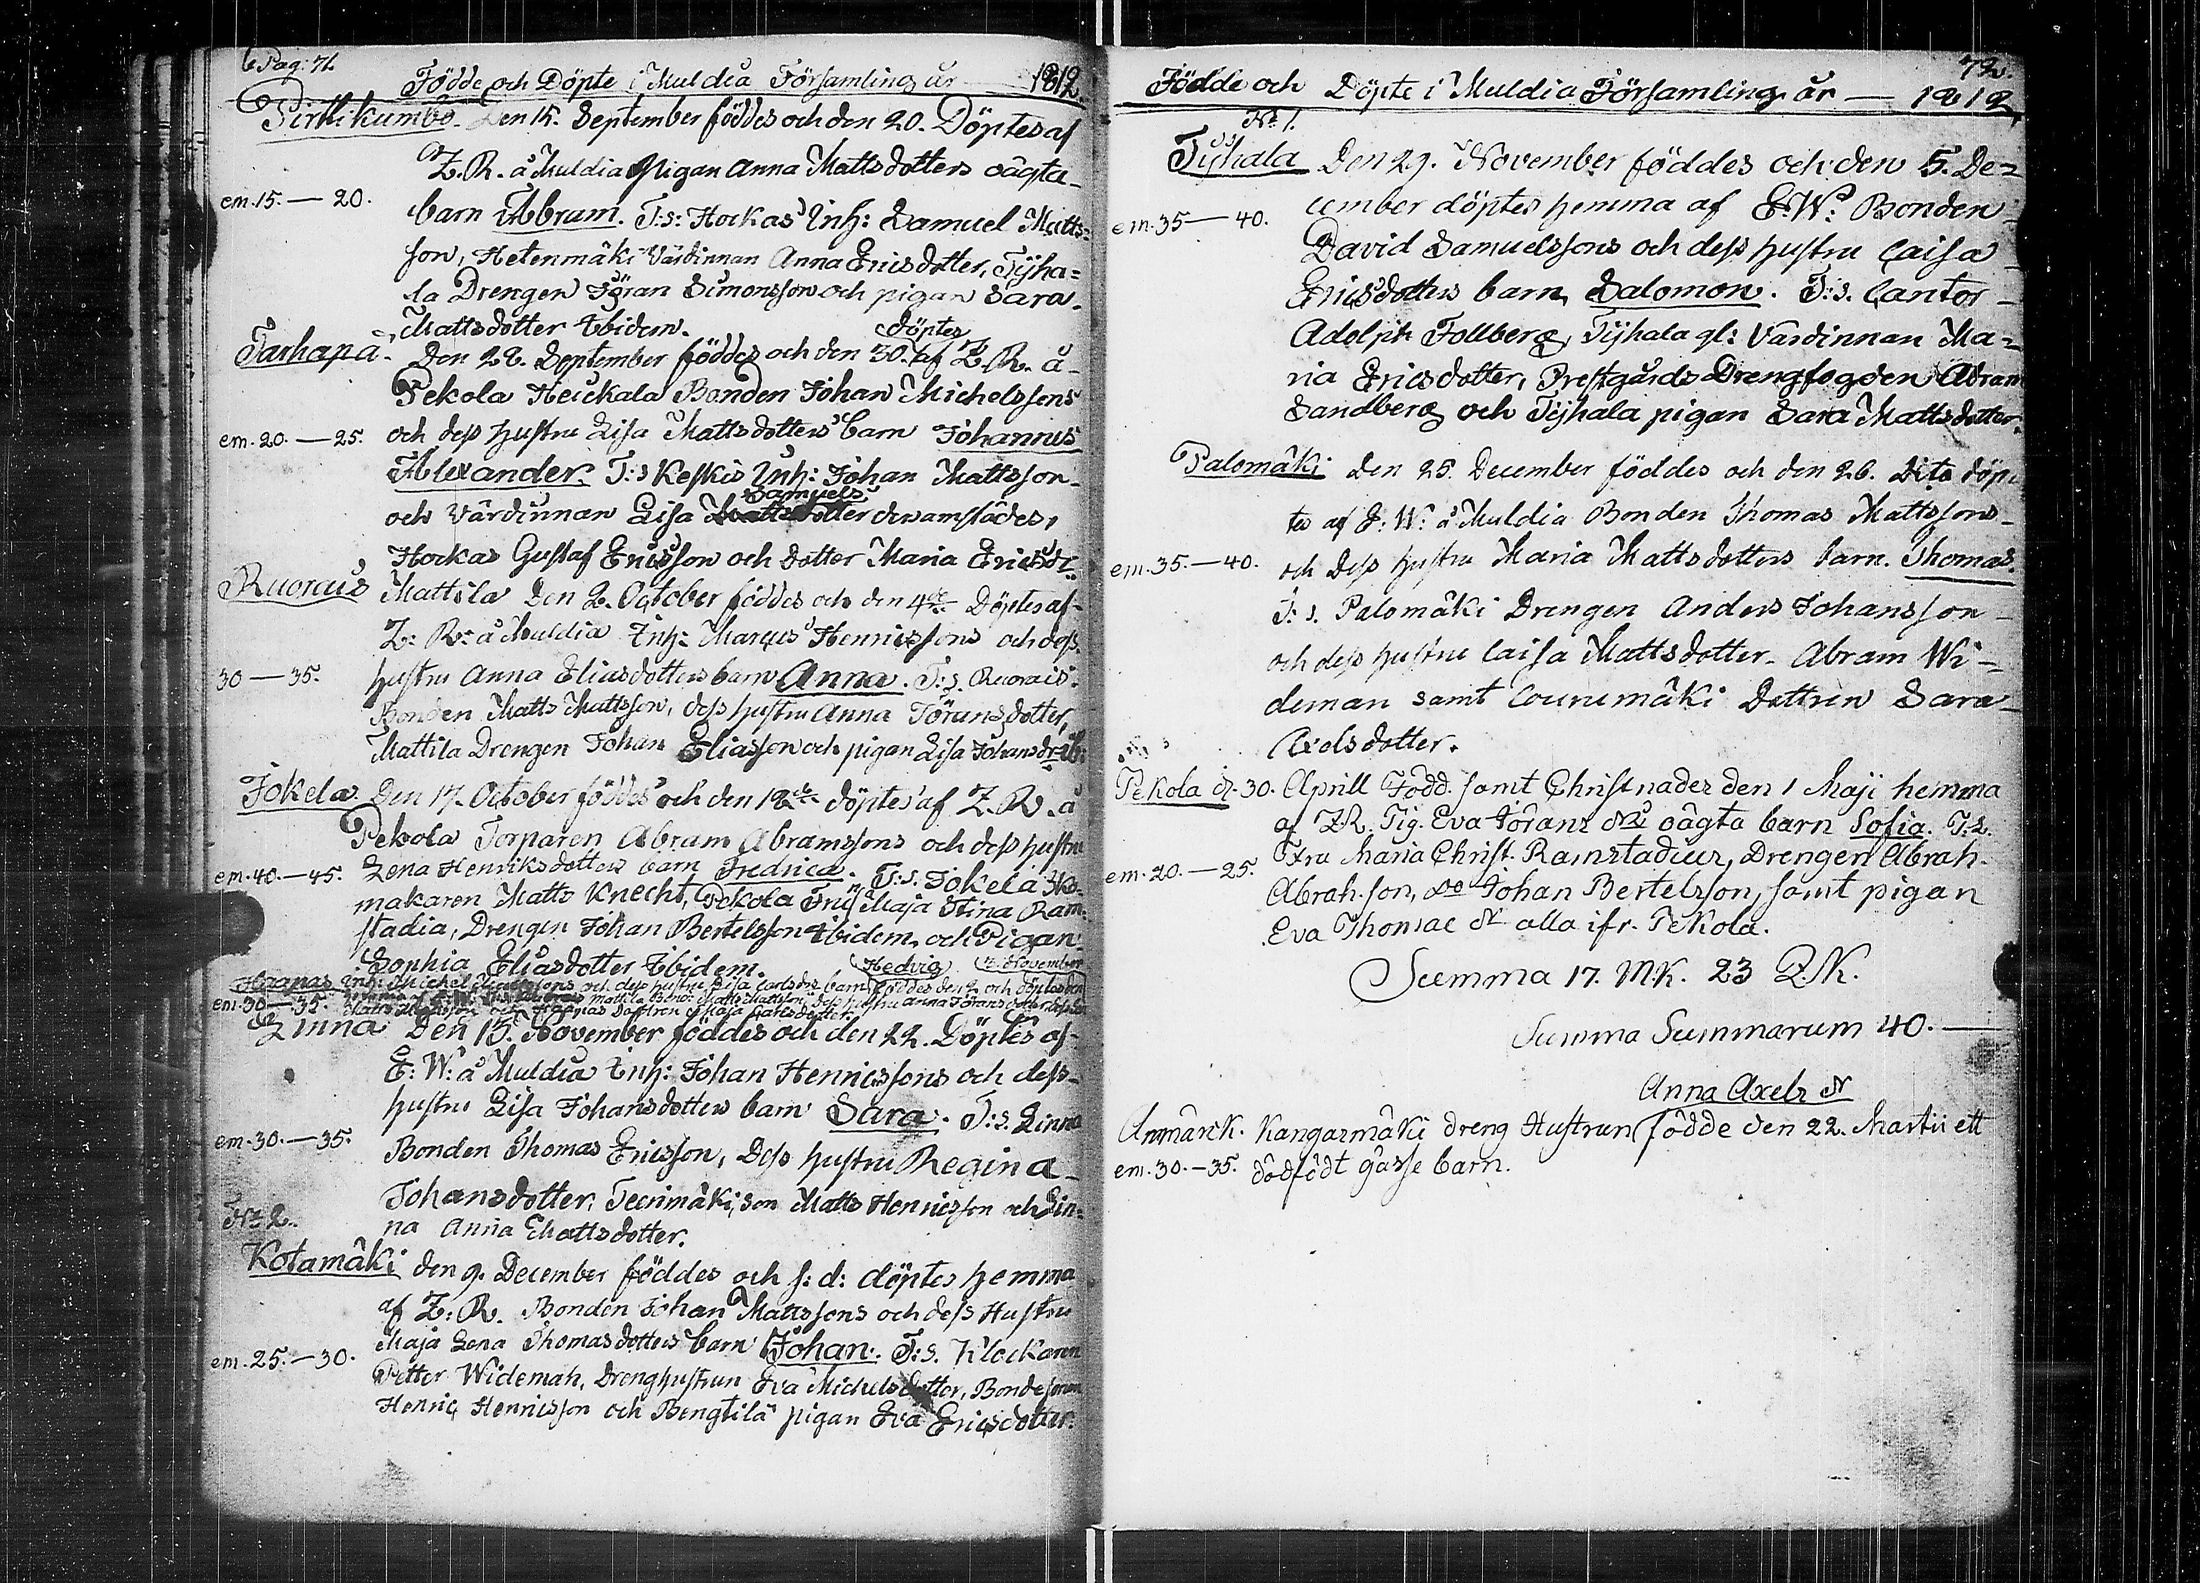 Pag: 71.
Födde och Döpte i Muldia Församling år 1812.
Pirttikumbo. Den 15. September föddes och den 20. Döptes af
Z. R. å Muldia Pigan Anna Matts dotters oägta
em. 15. — 20. barn Abram. T: s: Hockas Inh: Samuel Matts=
son, Hetenmäki Värdinnan Anna Erics dotter, Tijha=
la Drengen Jöran Simonsson och pigan Sara
Matts dotter Ibidem.
Tarhapä. Den 28. September föddes och den 30. döptes af Z. R. å
Pekola Heickala Bonden Johan Michelssons
em. 20. — 25. och dess hustru Lisa Matts dotters barn Johannes
Alexander. T: s Keskis Inh: Johan Mattsson
och Värdinnan Lisa Samuels dotter dersamstädes,
Hockas Gustaf Ericsson och dotter Maria Erics dr.
Ruorais Mattila Den 2. October föddes och den 4de Döptes af
Z: R: å Muldia Inh: Marcus Henricssons och dess
30 — 35. hustru Anna Elias dotters barn Anna. T: s. Ruorais
Bonden Matts Mattsson, dess hustru Anna Jörans dotter,
Mattila Drengen Johan Eliasson och pigan Lisa Johans dr. ib.
Jokela. Den 17. October föddes och den 18de döptes af Z. R. å
Pekola Torparen Abram Abramssons och dess hustru
em. 40. — 45. Lena Henriks dotters barn Fredrica. T: s. Jokela Sko-
makaren Matts Knecht, Pekola Fru Maja Stina Ram
stadia, Drengen Johan Bertelsson Ibidem, och Pigan
Sophia Elias dotter Ibidem.
Hedvig November
Haapas Inh: Michel och dess hustru Lisa Carls drs barn föddes den och döptes den
em. 30 — 35. Mattila Bond: Matts Mattsson, dess hustru Anna Jörans dotter
och Haapas Dottren Maja Carls dotter.
Linna Den 15. November föddes och den 22. Döptes af
E: W: å Muldia Inh: Johan Henricssons och dess
hustru Lisa Johans dotters barn Sara. T: s. Linna
em. 30. — 35. Bonden Thomas Ericsson, Dess hustru Regina
Johans dotter, Teerimäki, son Matts Henricsson och Lin=
No 2. na Anna Matts dotter.
Kotamäki den 9. December föddes och s: d: döptes hemma
af Z: R. Bonden Johan Mattssons och dess Hustru
Maja Lena Thomas dotters barn Johan. T: s. Klockaren
em. 25. — 30. Petter Wideman, Dreng hustrun Eva Michels dotter, Bondesonen
Henric Henricsson och Bengtilä pigan Eva Erics dotter.
72.
Födde och Döpte i Muldia Församling år — 1812,
No 1.
Tijhala Den 29. November föddes och den 5. De=
em. 35 — 40. cember döptes hemma af E: W: Bonden
David Samuelssons och dess hustru Caisa
Erics dotters barn Salomon. T: s. Cantor
Adolph Follberg, Tijhala gl: Värdinnan Ma=
ria Erics dotter, Prestgårds Drengfogden Abram
Sandberg och Tijhala pigan Sara Matts dotter.
Palomäki den 25. December föddes och den 26. Dito döp=
tes af E: W: å Muldia Bonden Thomas Mattssons
em. 35. — 40. och Dess hustru Maria Matts dotters barn. Thomas.
T: s. Palomäki Drengen Anders Johansson
och dess hustru Caisa Matts dotter. Abram Wi=
deman samt Counimäki Dottren Sara
Axels dotter.
Pekola d. 30. Aprill Född samt Christnades den 1 Maji hemma
af ZR. Pig. Eva Jörans drs oägta barn Sofia. T: s.
Fru Maria Christ. Ramstadius, Drengen Abrah.
em. 20. — 25. Abrah. son, do Johan Bertelsson, samt pigan
Eva Thomae dr alla ifr. Pekola.
Summa 17. M.K. 23 Q.K.
Summa Summarum 40. —
Anna Axels dr
Anmärck. Kangasmäki dreng Hustrun födde den 22. Martii ett
em. 30. — 35. dödfödt gåsse barn.